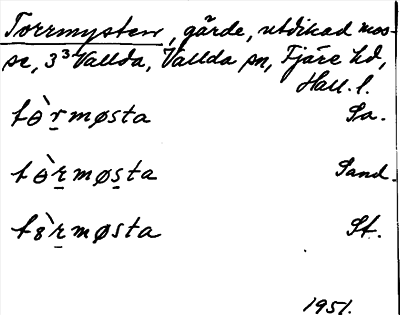 Torrmysten, gärde, utdikad mos-
se, 3³ Vallda, Vallda sn, Fjäre hd,
Hall. l.
tɵ̀r̠møsta Sa.
tɵ̀r̠møs̠ta Sand.
t8̀r̠møsta St.
1951.